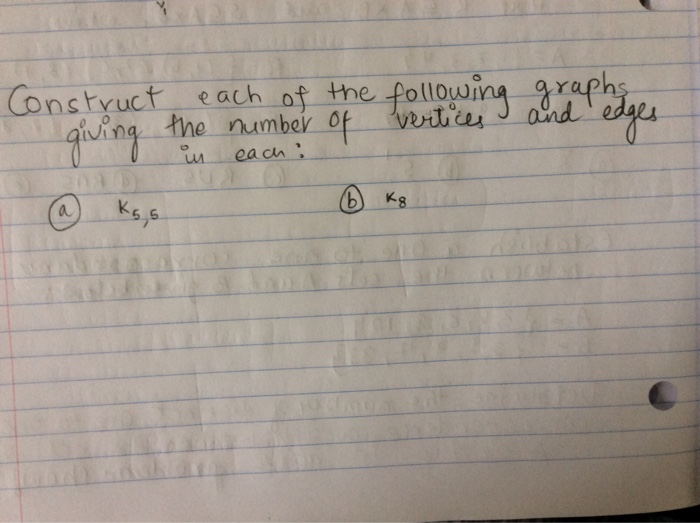 Construct each of the following graphs
giving the number of vertices and edges
in each:
(a) K5,5 (b) K8